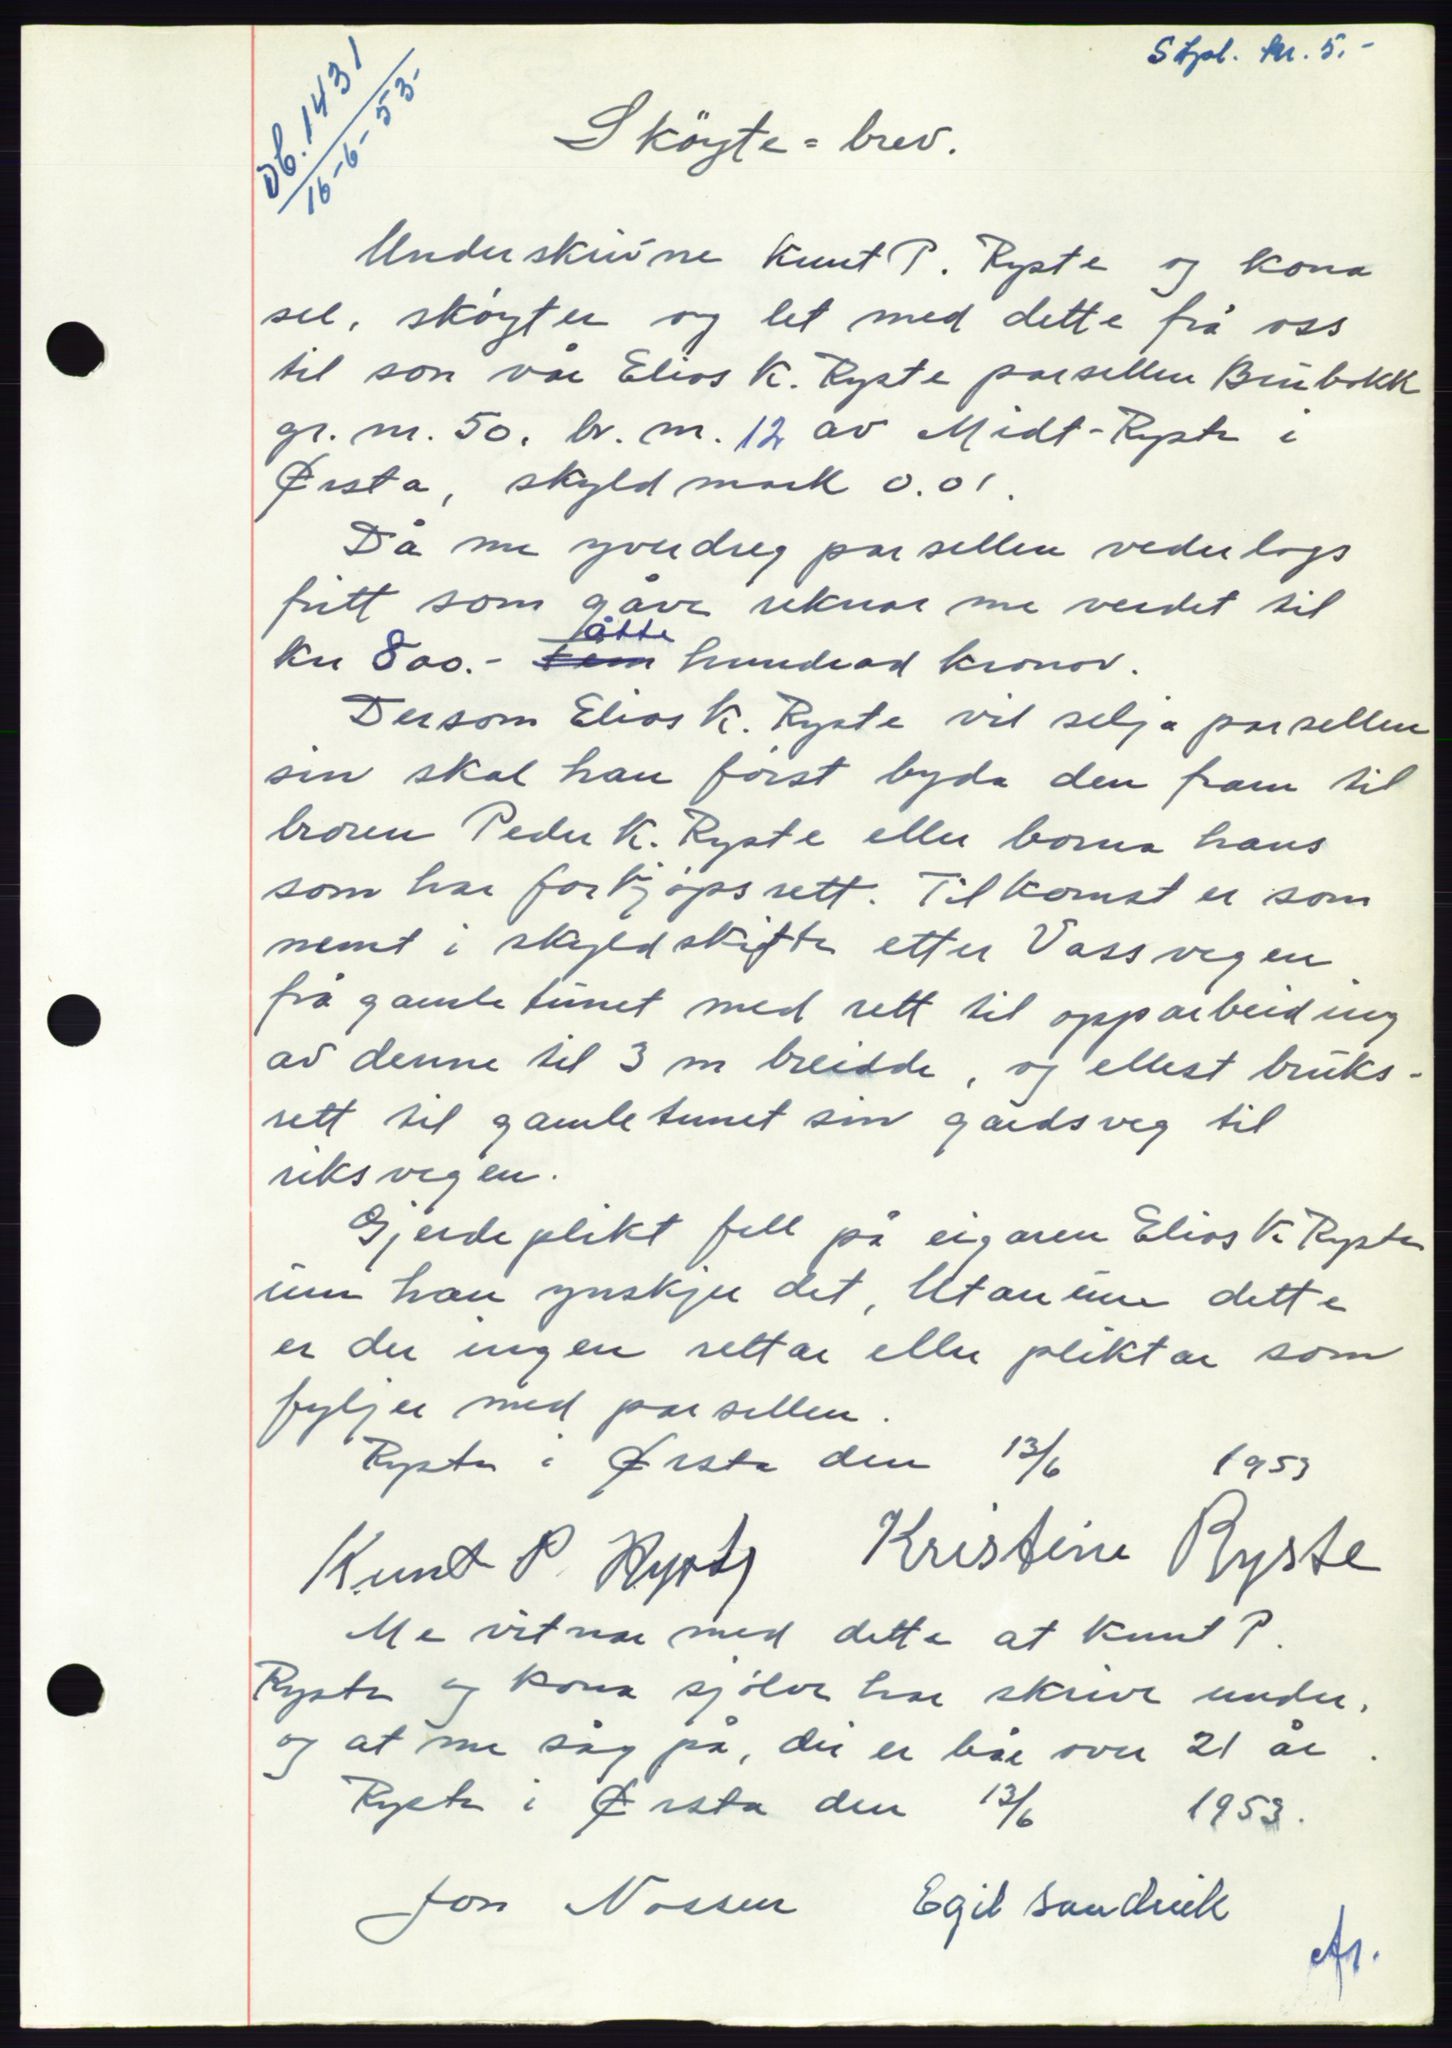 Stpl. kr. 5.-
Db. 1431
16-6-53-
Sköyte = brev.
Underskrivne Knut P. Ryste og kona
sel, skøyter og let med dette frå oss
til son vår Elias K. Ryste parsellen
gr. nr. 50, br. nr. 12 av Midt-Ryste i
Ørsta, skyldmark 0.01.
Då me yverdreg parsellen vederlags
fritt som gåve reknar me verdet til
kr 800.- fem åtte hundrad kronor.
Dersom Elias K. Ryste vil selja parsellen
sin skal han först byda den fram til
broren Peder K. Ryste eller borna hans
som har forkjöpsrett. Tilkomst er som
nemt i skyldskifte etter Vassvegen
frå gamletunet med rett til opparbeiding
av denne til 3 m breidde, og ellest bruks-
rett til gamletunet sin gardsveg til
riksvegen.
Gjerdeplikt fell på eigaren Elias K Ryste
um han ynskjer det, Utanum dette
er der ingen rettar eller pliktar som
fyljer med parsellen.
Ryste i Ørsta den 13/6 1953
Knut P. Ryste Kristine Ryste
Me vitnar med dette at Knut P.
Ryste og kona sjölve har skrive under,
og at me såg på, dei er båe over 21 år.
Ryste i Ørsta den 13/6 1953.
Jon Nossen Egil Sandvik